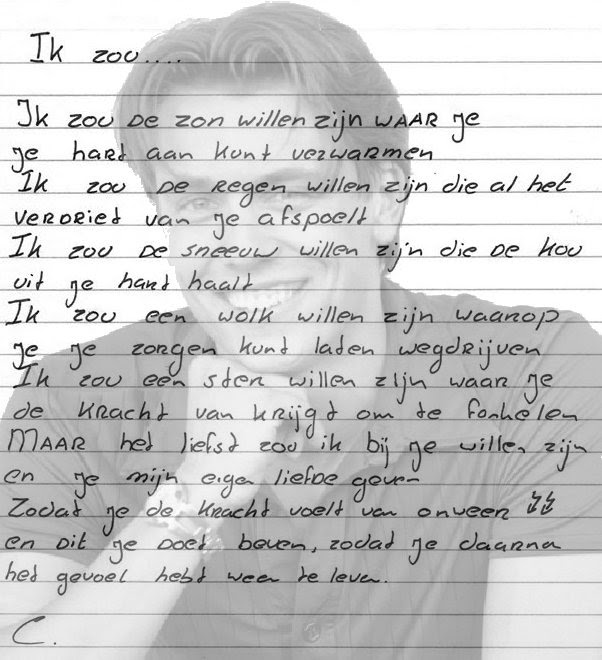 Ik zou....
Ik zou de zon willen zijn waar je
je hart aan kunt verwarmen
Ik zou de regen willen zijn die al het
verdriet van je afspoelt
Ik zou de sneeuw willen zijn die de kou
uit je hart haalt
Ik zou een wolk willen zijn waarop
je je zorgen kunt laten wegdrijven
Ik zou een ster willen zijn waar je
de kracht van krijgt om te fonkelen
Maar het liefst zou ik bij je willen zijn
en je mijn eigen liefde geven
Zodat je de kracht voelt van onweer
en dit je doet beven, zodat je daarna
het gevoel hebt weer te leven.
C.